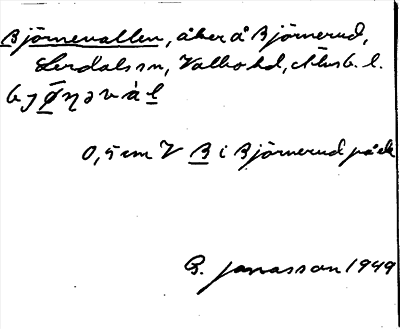 Björnevallen, åker å Björnerud,
Lerdals sn, Valbo hd, Älvsb. l.
0,5 cm V B i Björnerud på ek
G. Jonasson 1949